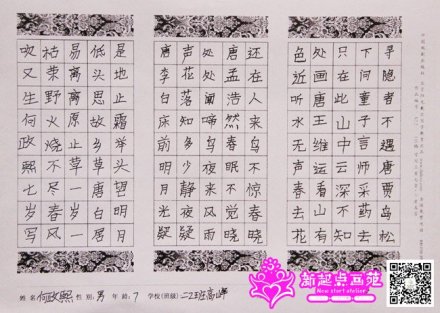 寻隐者不遇唐贾岛松
下问童子言师采药去
只在此山中云深不知
处画唐王维远看山有
色近听水无声春去花
还在人来鸟不惊春晓
唐孟浩然春眠不觉晓
处处闻啼鸟夜来风雨
声花落知多少静夜疑
唐李白床前明月光疑
是地上霜举头望明月
低头思故乡草唐白居
易离离原上草一岁一
枯荣野火烧不尽春风
吹又生何政熙七岁写
姓名:何政熙 性别:男 年龄:7 学校(班级)二2班高峰
新起点画苑
New start atelier